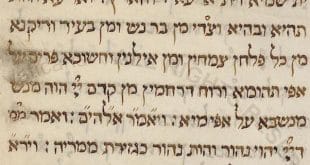 תהיא ובהיא וצדי מן בר נש ומן בעיר וריקנא
מן כל פלחן צמחין ומן אילנין וחשוכא פריס על
אפי תהומא ורוח דרחמין מן קדם ייי הוה מנשב
מנשבא על אפי מיא : ויאמר אלהים :
דייי יהוי נהור והוה נהור כגזירת ממריה : וירא